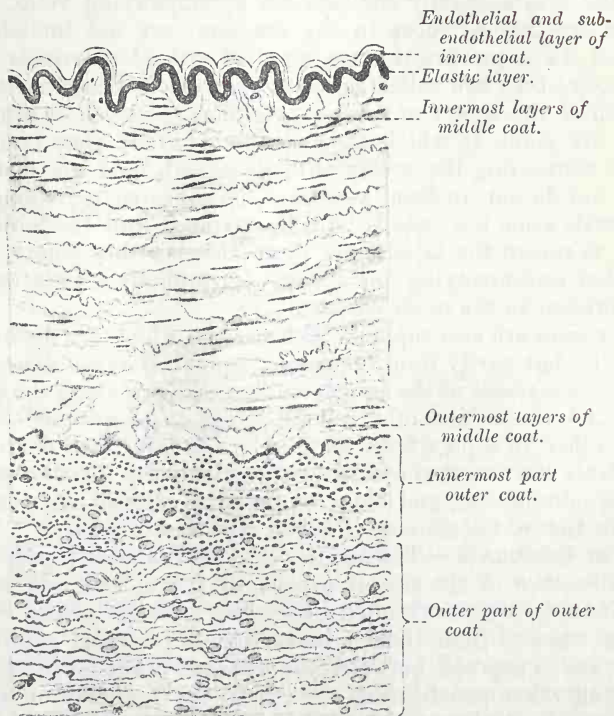 Endothelial and sub-
endothelial layer of
inner coat.
Elastic layer.
Innermost layers of
middle coat.
Outermost layers of
middle coat.
Innermost part
outer coat.
Outer part of outer
coat.